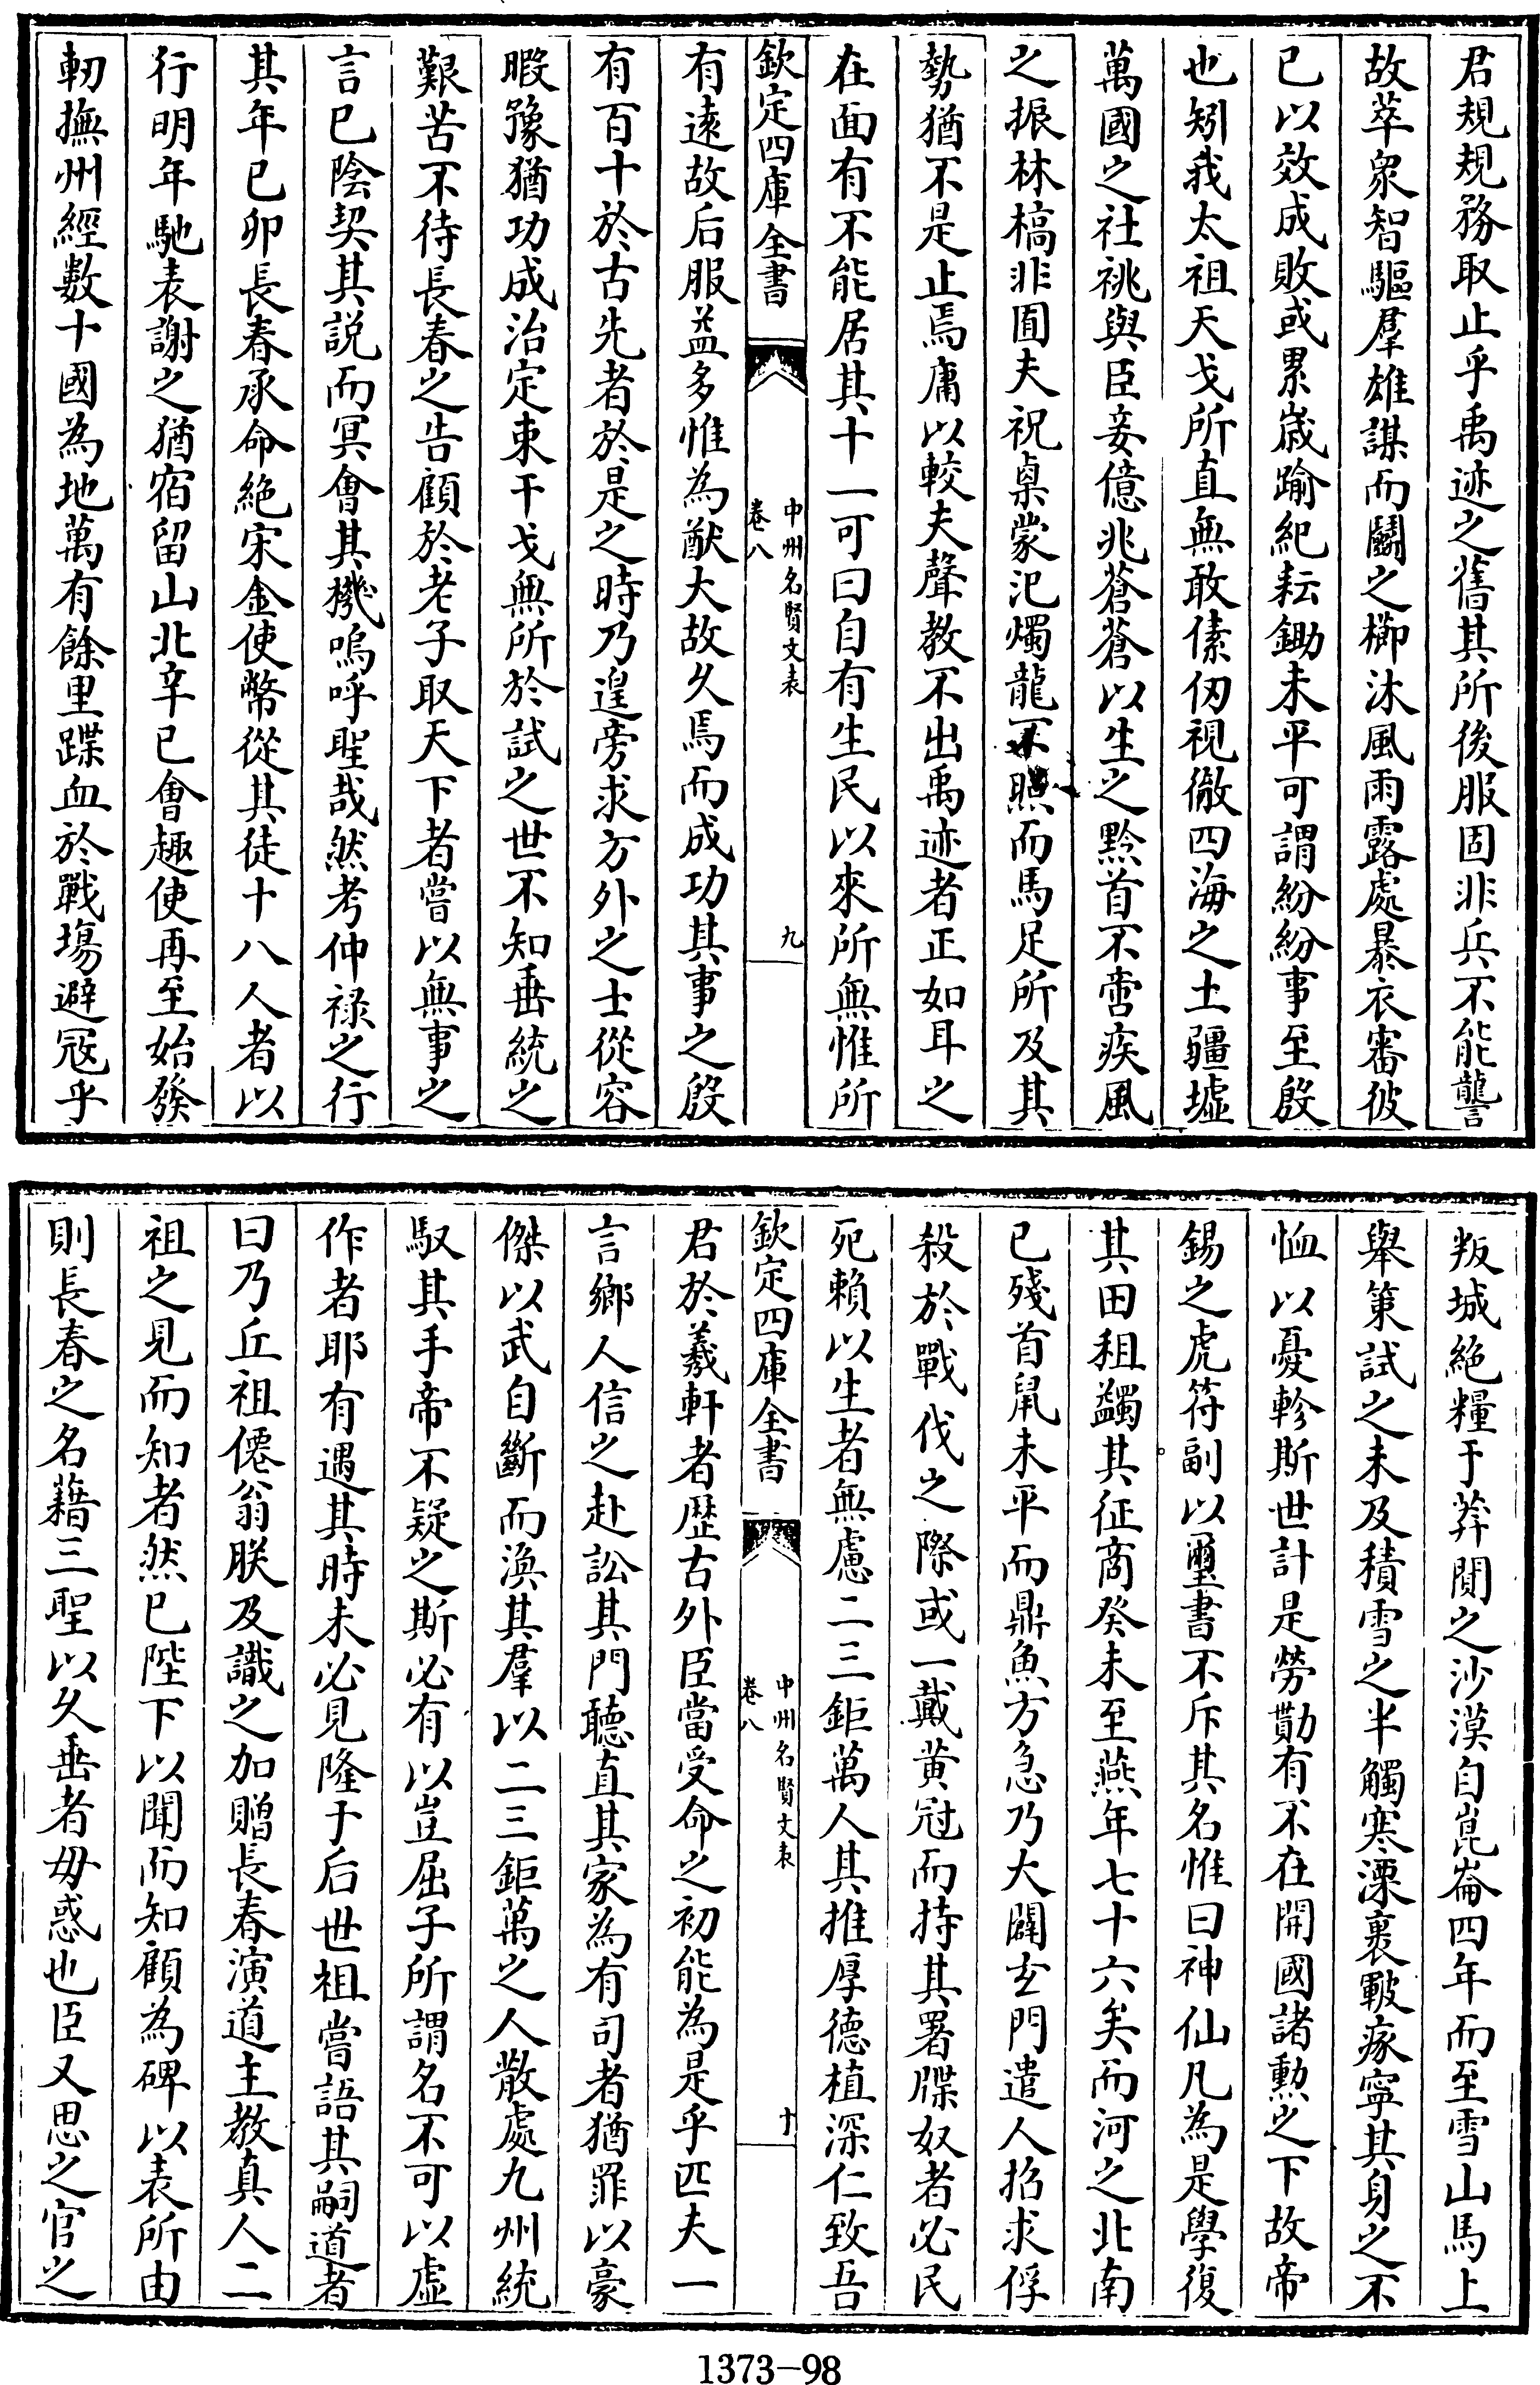 君規規務取止乎禹迹之舊其所後服固非兵不能讋
故萃衆智驅羣雄謀而鬬之櫛沐風雨露處暴衣審彼
已以效成敗或累歲踰紀耘鋤未平可謂紛紛事至殷
也矧我太祖天戈所直無敢傃仞視徹四海之土疆墟
萬國之社祧與臣妾億兆蒼蒼以生之黔首不啻疾風
之振林槁非圁夫祝㮚蒙汜燭龍不照而馬足所及其
勢猶不是止焉庸以較夫聲教不出禹迹者正如耳之
在面有不能居其十一可曰自有生民以來所無惟所
欽定四庫全書
中州名賢文表
卷八
九
有遠故后服益多惟為猷大故久焉而成功其事之殷
有百十於古先者於是之時乃遑旁求方外之士從容
暇豫猶功成治定束干戈無所於試之世不知垂統之
艱苦不待長春之告顧於老子取天下者嘗以無事之
言已陰契其説而冥會其機嗚呼聖哉然考仲禄之行
其年已卯長春承命絶宋金使幣從其徒十八人者以
行明年馳表謝之猶宿留山北辛已會趣使再至始發
軔撫州經數十國為地萬有餘里蹀血於戰塲避冦乎
叛城絶糧于莽閒之沙漠自崑崙四年而至雪山馬上
舉䇿試之未及積雪之半觸寒溧裏皸瘃寧其身之不
恤以憂軫斯世計是勞勩有不在開國諸勲之下故帝
錫之虎符副以璽書不斥其名惟曰神仙凡為是學復
其田租蠲其征商癸未至燕年七十六矣而河之北南
已殘首鼠未平而鼎魚方急乃大闢𤣥門遣人招求俘
殺於戰伐之際或一戴黄冠而持其署牒奴者必民
死賴以生者無慮二三鉅萬人其推厚德植深仁致吾
欽定四庫全書
中州名賢文表
卷八
十
君於羲軒者歴古外臣當受命之初能為是乎匹夫一
言鄉人信之赴訟其門聽直其家為有司者猶罪以豪
傑以武自斷而渙其羣以二三鉅萬之人散處九州統
馭其手帝不疑之斯必有以豈屈子所謂名不可以虛
作者耶有遇其時未必見隆于后世祖嘗語其嗣道者
曰乃丘祖僊翁朕及識之加贈長春演道主教真人二
祖之見而知者然已陛下以聞而知顧為碑以表所由
則長春之名藉三聖以久垂者毋惑也臣又思之官之
1373-98